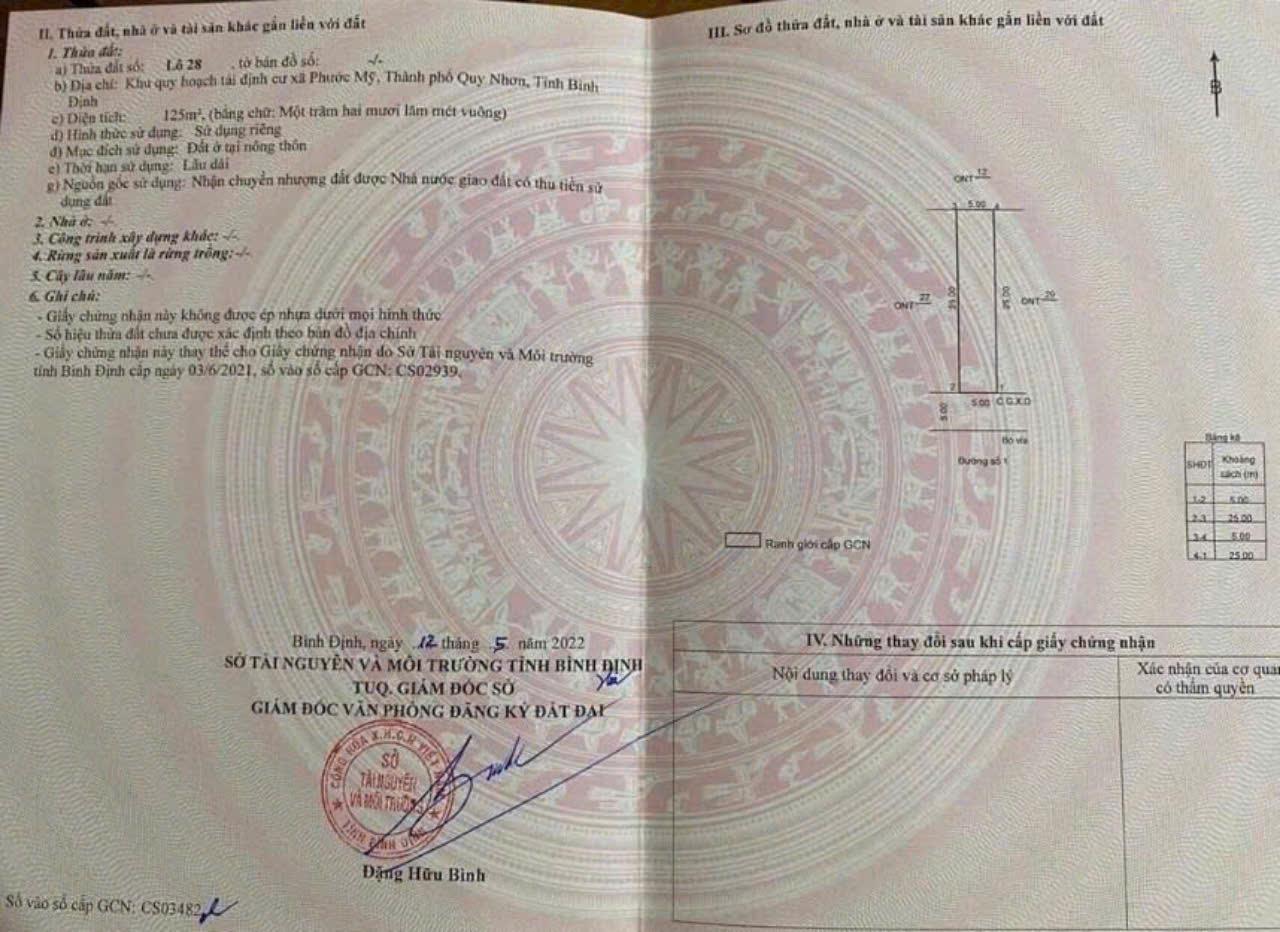 II. Thửa đất, nhà ở và tài sản khác gắn liền với đất
1. Thửa đất:
a) Thửa đất số: Lô 28 , tờ bản đồ số: -/-
b) Địa chỉ: Khu quy hoạch tái định cư xã Phước Mỹ, Thành phố Quy Nhơn, Tỉnh Bình
Định
c) Diện tích: 125m², (bằng chữ: Một trăm hai mươi lăm mét vuông)
d) Hình thức sử dụng: Sử dụng riêng
đ) Mục đích sử dụng: Đất ở tại nông thôn
e) Thời hạn sử dụng: Lâu dài
g) Nguồn gốc sử dụng: Nhận chuyển nhượng đất được Nhà nước giao đất có thu tiền sử
dụng đất
2. Nhà ở: -/-
3. Công trình xây dựng khác: -/-
4. Rừng sản xuất là rừng trồng: -/-
5. Cây lâu năm: -/-
6. Ghi chú:
- Giấy chứng nhận này không được ép nhựa dưới mọi hình thức
- Số hiệu thửa đất chưa được xác định theo bản đồ địa chính
- Giấy chứng nhận này thay thế cho Giấy chứng nhận do Sở Tài nguyên và Môi trường
tỉnh Bình Định cấp ngày 03/6/2021, số vào sổ cấp GCN: CS02939.
Bình Định, ngày 12 tháng 5 năm 2022
SỞ TÀI NGUYÊN VÀ MÔI TRƯỜNG TỈNH BÌNH ĐỊNH
TUQ. GIÁM ĐỐC SỞ
GIÁM ĐỐC VĂN PHÒNG ĐĂNG KÝ ĐẤT ĐAI
CỘNG HÒA X.H.C.N VIỆT NAM
SỞ
TÀI NGUYÊN
VÀ MÔI TRƯỜNG
TỈNH BÌNH ĐỊNH
Đặng Hữu Bình
Số vào sổ cấp GCN: CS03482
III. Sơ đồ thửa đất, nhà ở và tài sản khác gắn liền với đất
B
ONT 12
3 5.00 4
ONT 27
25.00
25.00
ONT 29
2 1
5.00
5.00 C.G.X.D
Bó vỉa
Đường số 1
Bảng kê
SHĐT Khoảng
cách (m)
1-2 5.00
2-3 25.00
3-4 5.00
4-1 25.00
Ranh giới cấp GCN
IV. Những thay đổi sau khi cấp giấy chứng nhận
Nội dung thay đổi và cơ sở pháp lý
Xác nhận của cơ quan
có thẩm quyền